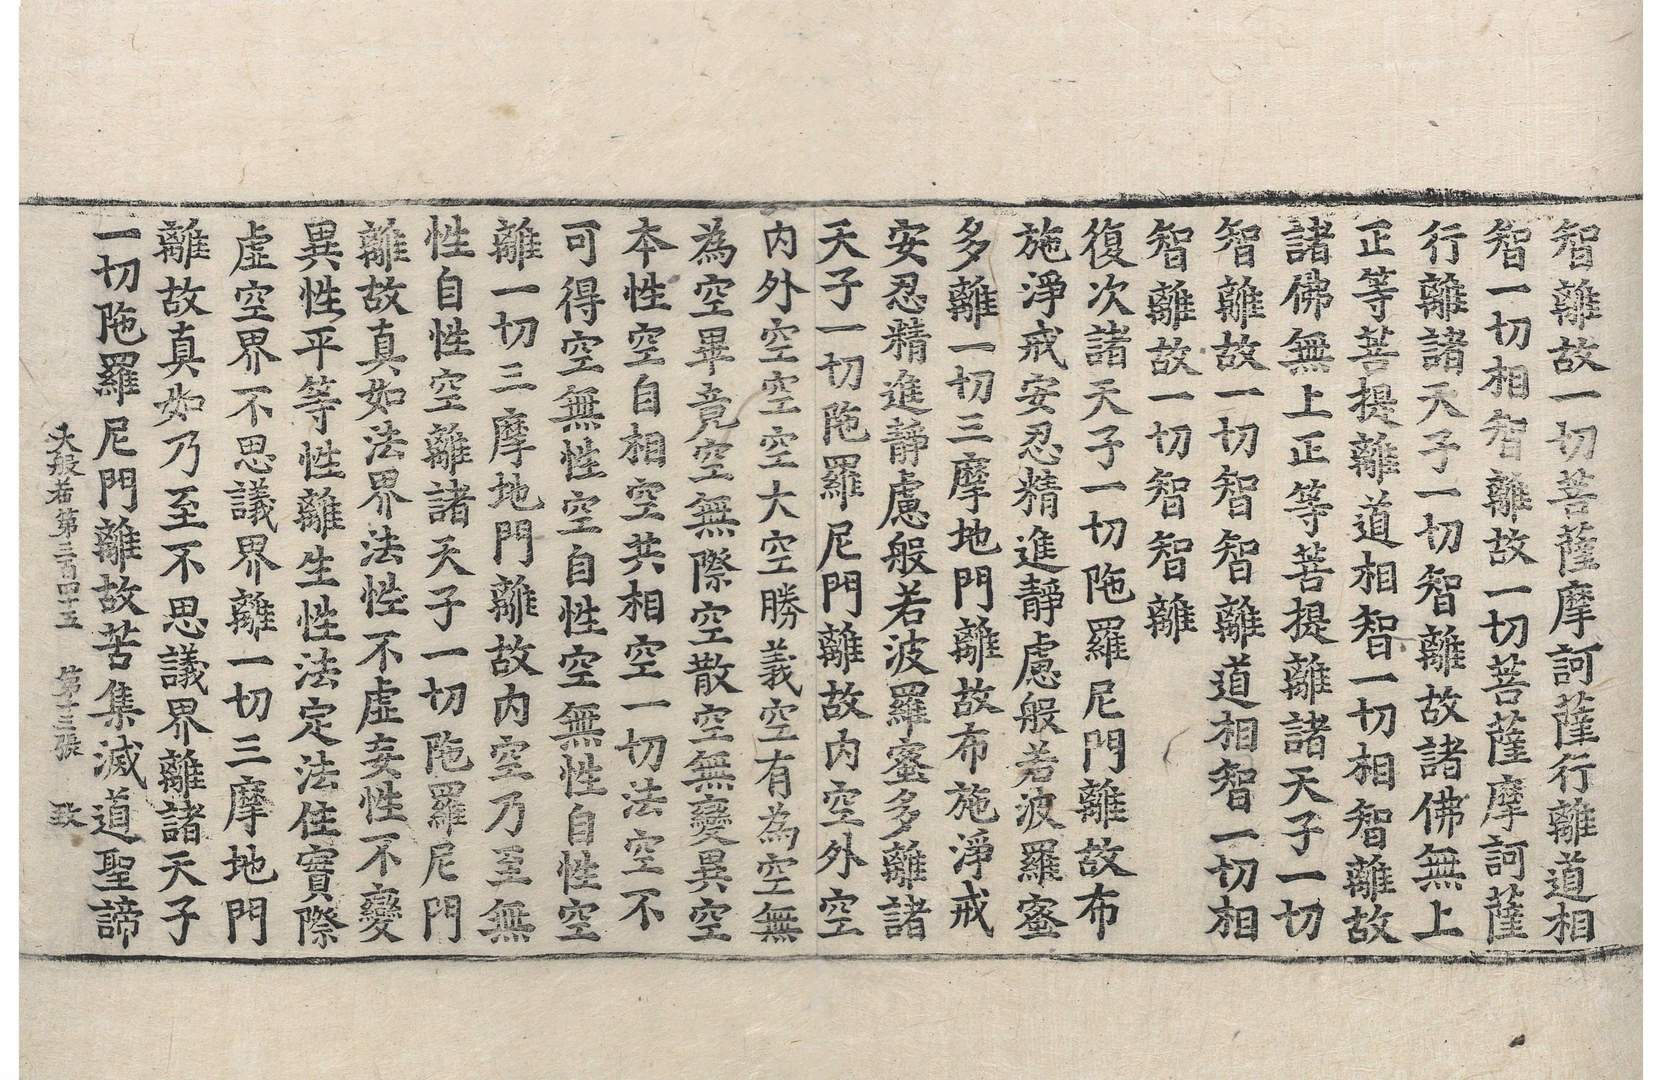 智離故一切菩薩摩訶薩行離道相
智一切相智離故一切菩薩摩訶薩
行離諸天子一切智離故諸佛無上
正等菩提離道相智一切相智離故
諸佛無上正等菩提離諸天子一切
智離故一切智智離道相智一切相
智離故一切智智離
復次諸天子一切陁羅尼門離故布
施淨戒安忍精進靜慮般若波羅蜜
多離一切三摩地門離故布施淨戒
安忍精進靜慮般若波羅蜜多離諸
天子一切陁羅尼門離故内空外空
内外空空空大空勝義空有為空無
為空畢竟空無際空散空無變異空
本性空自相空共相空一切法空不
可得空無性空自性空無性自性空
離一切三摩地門離故内空乃至無
性自性空離諸天子一切陁羅尼門
離故真如法界法性不虛妄性不變
異性平等性離生性法定法住實際
虛空界不思議界離一切三摩地門
離故真如乃至不思議界離諸天子
一切陁羅尼門離故苦集滅道聖諦
大般若第三百四十五 第十三張 致